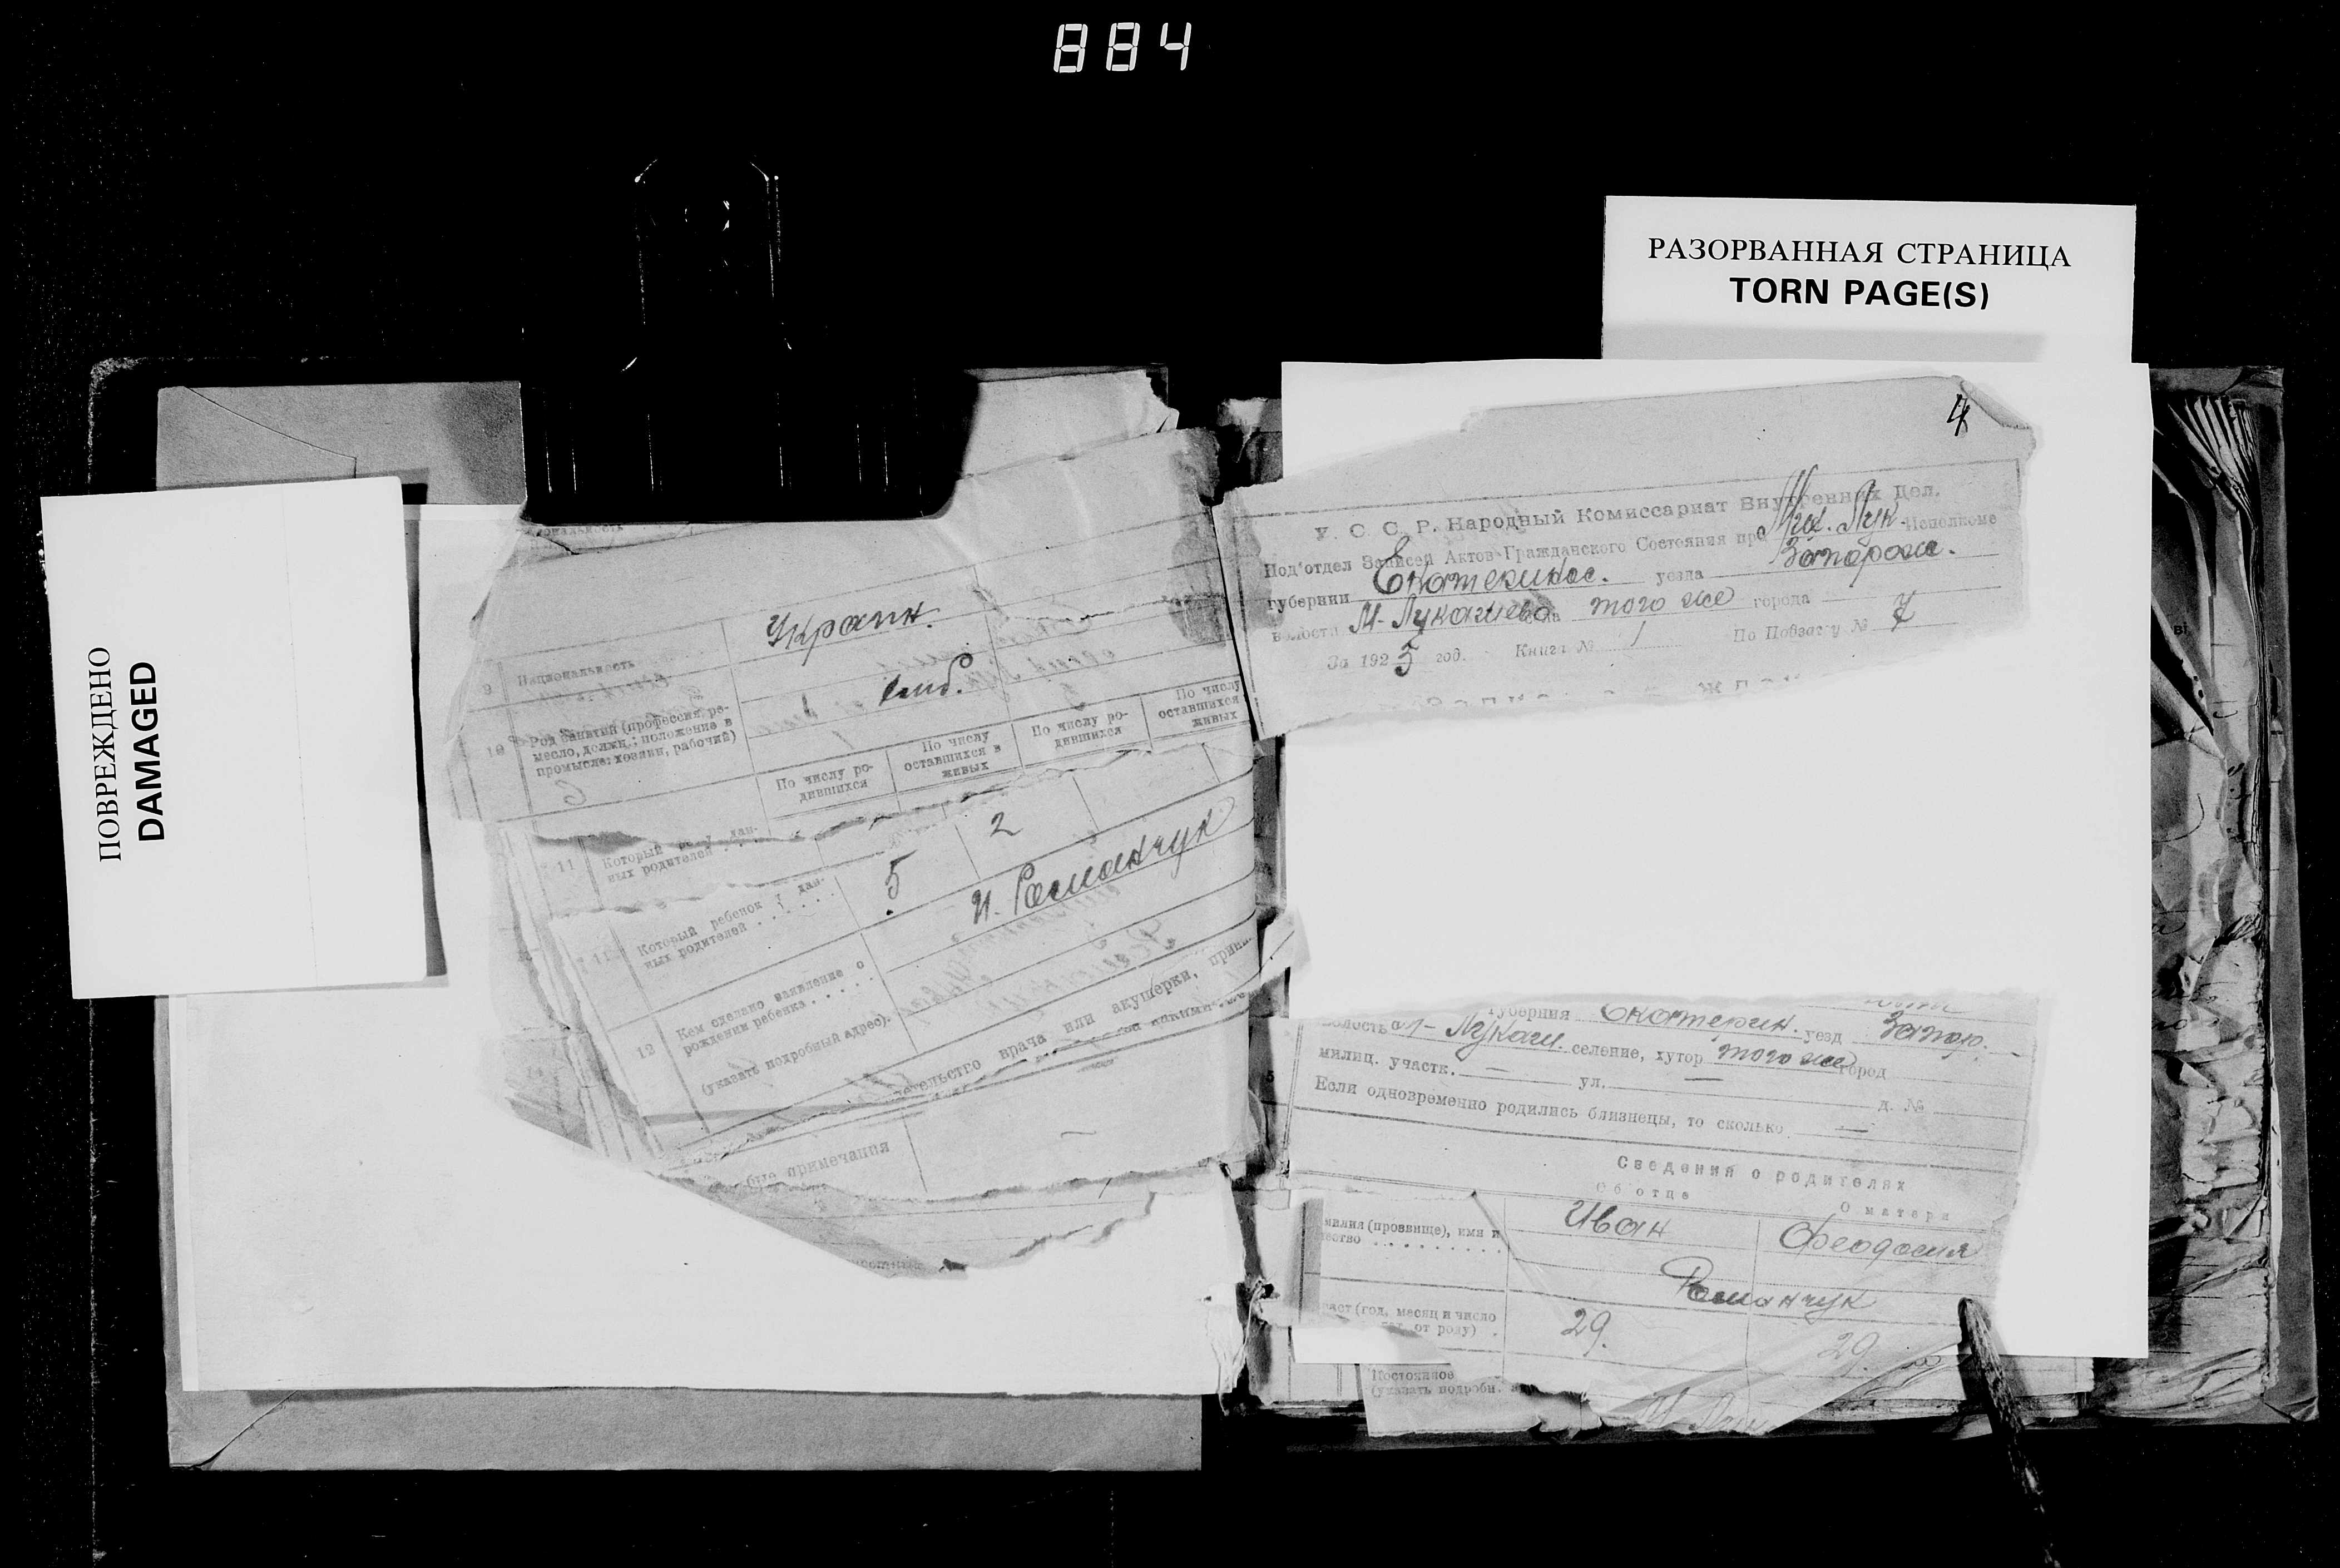 884
РАЗОРВАННАЯ СТРАНИЦА
TORN PAGE(S)
ПОВРЕЖДЕНО
DAMAGED
9 Национальность
Украин.
10 Род занятий (профессия, ре-
месло, должн.; положение в
промысле: хозяин, рабочий)
По числу ро-
дившихся
По числу
оставшихся в
живых
По числу ро-
дившихся
По числу
оставшихся
живых
11 Который
ных родителей
11 Который ребенок у дан-
ных родителей . . . . . .
5
2
12 Кем сделано заявление о
рождении ребенка . . . . .
(указать подробный адрес).
И. Романчук
врача или акушерки,
примечания
—
4
У. С. С. Р. Народный Комиссариат Внутренних Дел.
Под'отдел Записей Актов Гражданского Состояния при Мих. Лук. Исполкоме
губернии Екатеринос. уезда Запорож.
волости М-Лукашево того же города
За 1925 год. Книга № 1 По Повзасу № 7
губерния Екатерин. уезд Запор.
волость М-Лукаш. селение, хутор того же город
милиц. участк. — ул. — д. №
Если одновременно родились близнецы, то сколько —
Сведения о родителях
Об отце О матери
милия (прозвище), имя и
чество . . . . . . . . . .
Иван Феодосия
Романчук
раст (год, месяц и число
от роду) .
29. 29.
Постоянное
(указать подробн.